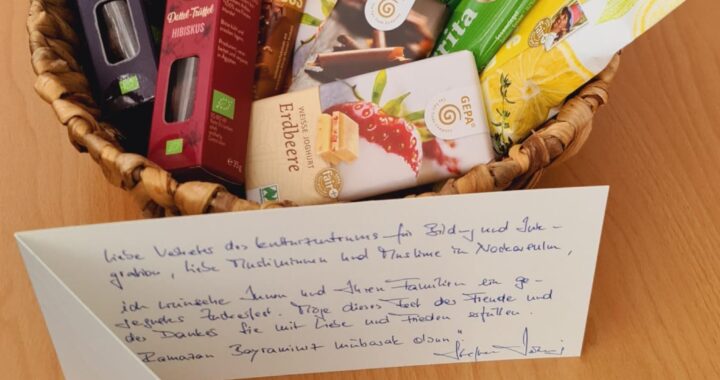 Dattel-Trüffel
HIBISKUS
GEPA
fair+
WEISSE JOGHURT
Erdbeere
Liebe Vertreter des Kulturzentrums für Bildung und Inte-
gration, liebe Musliminnen und Muslime in Neckarsulm,
ich wünsche Ihnen und Ihren Familien ein ge-
segnetes Zuckerfest. Möge dieses Fest der Freude und
des Dankes Sie mit Liebe und Frieden erfüllen.
Ramazan Bayramınız mübarek olsun!